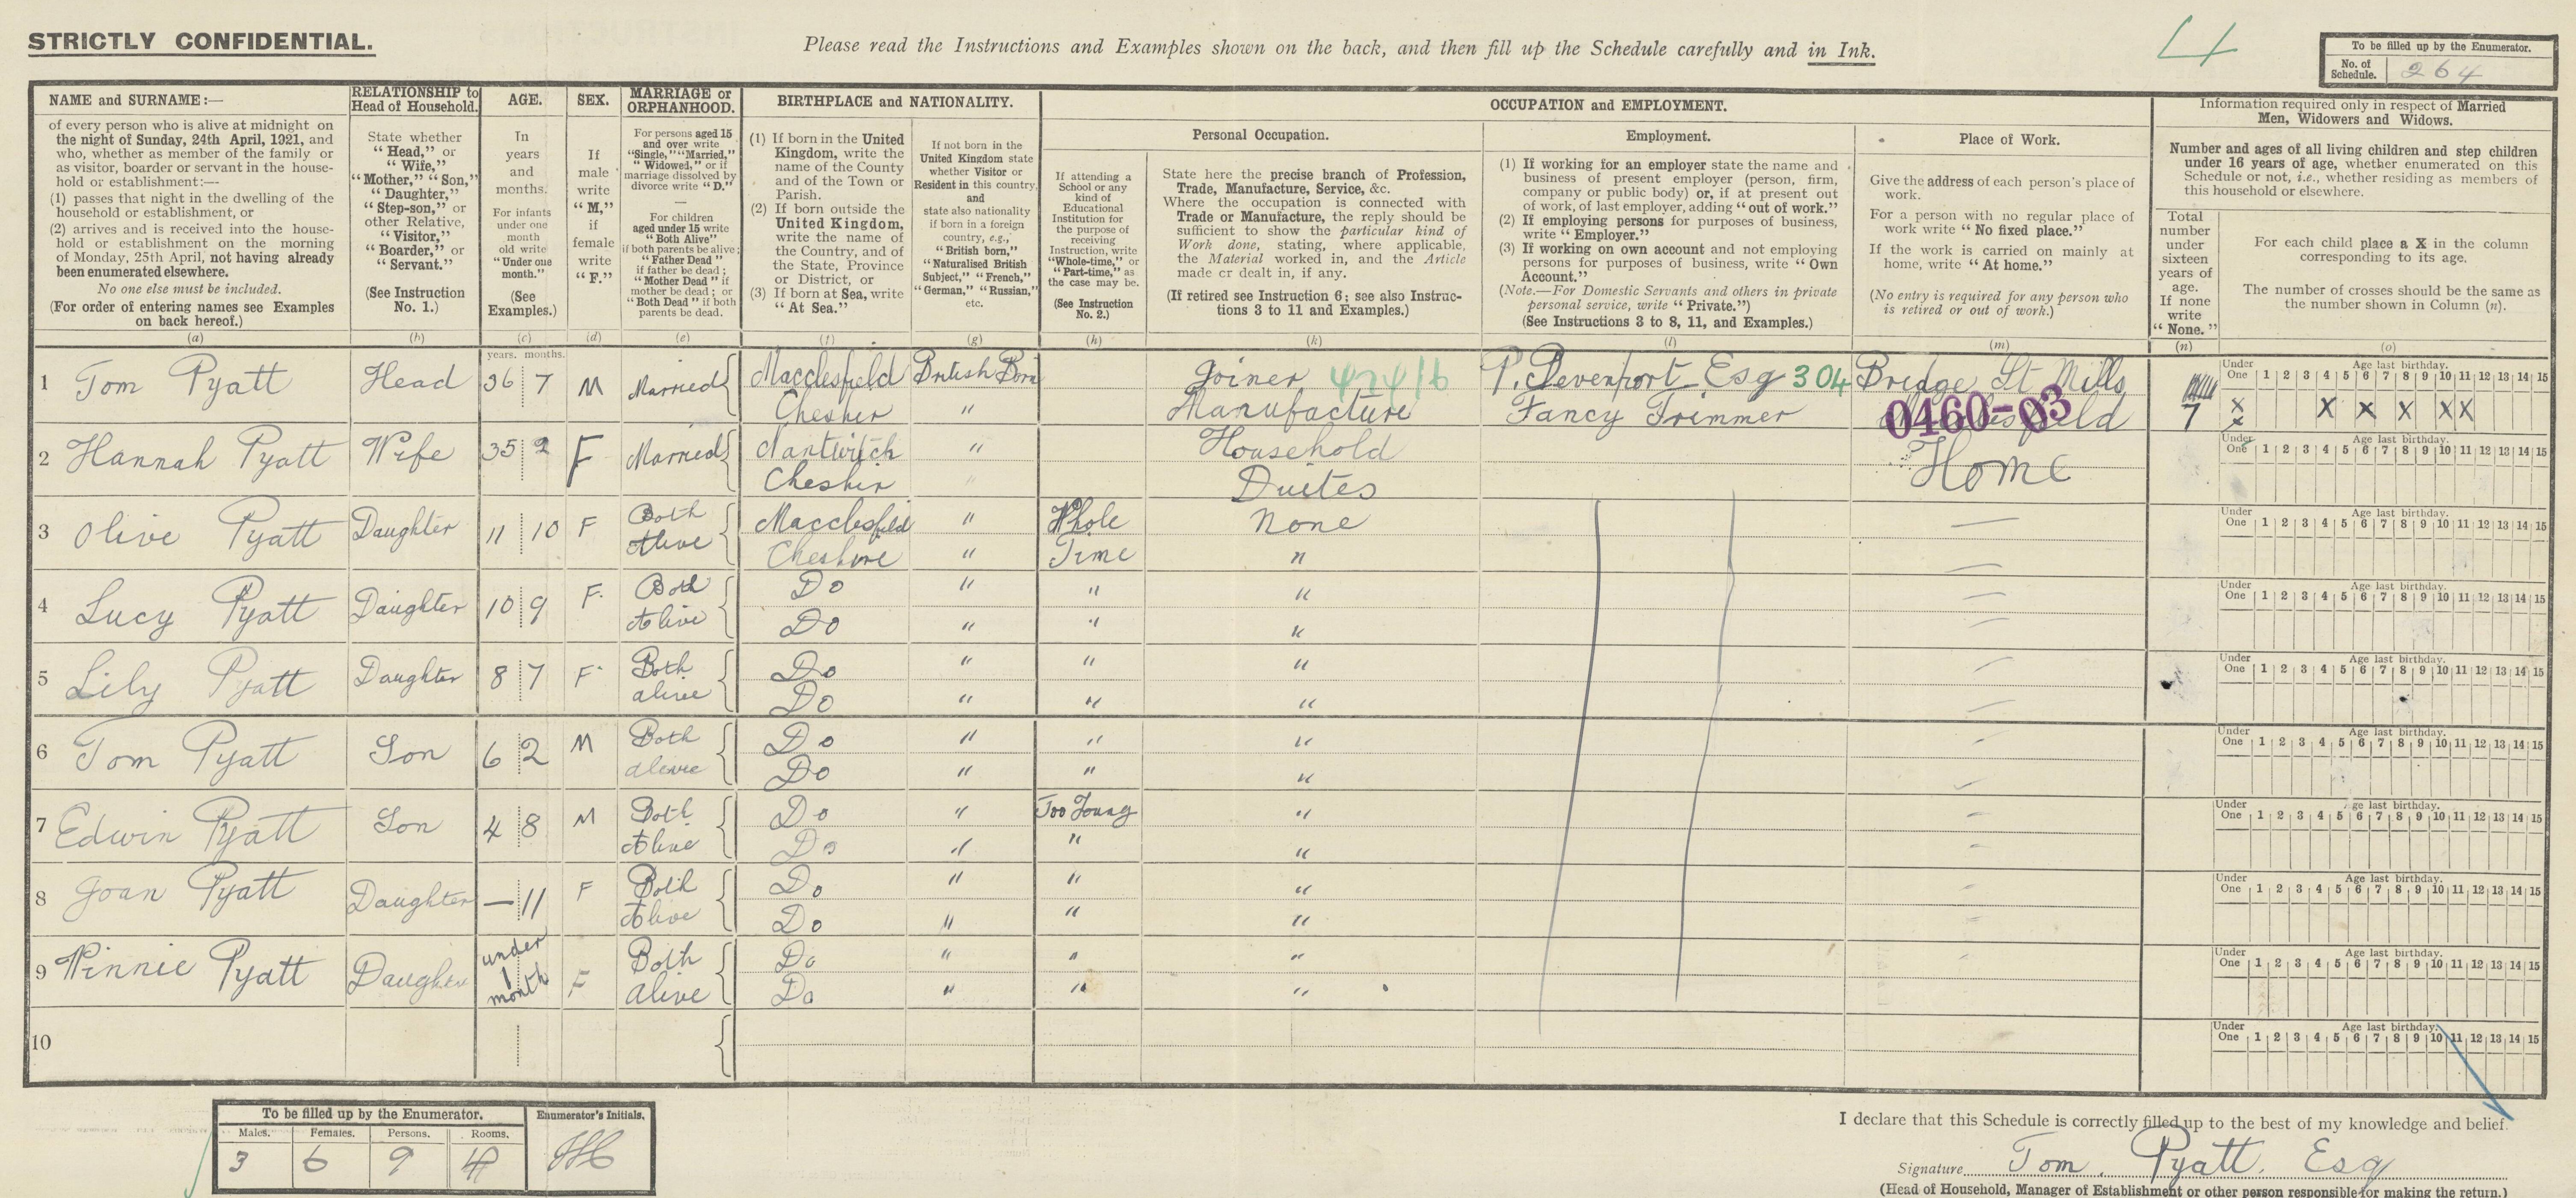 STRICTLY CONFIDENTIAL.
Please read the Instructions and Examples shown on the back, and then fill up the Schedule carefully and in Ink.
4
To be filled up by the Enumerator.
No. of Schedule. 264
NAME and SURNAME:—
of every person who is alive at midnight on
the night of Sunday, 24th April, 1921, and
who, whether as member of the family or
as visitor, boarder or servant in the house-
hold or establishment:—
(1) passes that night in the dwelling of the
household or establishment, or
(2) arrives and is received into the house-
hold or establishment on the morning
of Monday, 25th April, not having already
been enumerated elsewhere.
No one else must be included.
(For order of entering names see Examples
on back hereof.)
(a)
RELATIONSHIP to
Head of Household.
State whether
"Head," or
"Wife,"
"Mother," "Son,"
"Daughter,"
"Step-son," or
other Relative,
"Visitor,"
"Boarder," or
"Servant."
(See Instruction
No. 1.)
(b)
AGE.
In
years
and
months.
For infants
under one
month
old write
"Under one
month."
(See
Examples.)
(c)
SEX.
If
male
write
"M,"
if
female
write
"F."
(d)
MARRIAGE or
ORPHANHOOD.
For persons aged 15
and over write
"Single," "Married,"
"Widowed," or if
marriage dissolved by
divorce write "D."
—
For children
aged under 15 write
"Both Alive"
if both parents be alive;
"Father Dead"
if father be dead;
"Mother Dead" if
mother be dead; or
"Both Dead" if both
parents be dead.
(e)
BIRTHPLACE and NATIONALITY.
(1) If born in the United
Kingdom, write the
name of the County
and of the Town or
Parish.
(2) If born outside the
United Kingdom,
write the name of
the Country, and of
the State, Province
or District, or
(3) If born at Sea, write
"At Sea."
(f)
If not born in the
United Kingdom state
whether Visitor or
Resident in this country,
and
state also nationality
if born in a foreign
country, e.g.,
"British born,"
"Naturalised British
Subject," "French,"
"German," "Russian,"
etc.
(g)
OCCUPATION and EMPLOYMENT.
If attending a
School or any
kind of
Educational
Institution for
the purpose of
receiving
Instruction, write
"Whole-time," or
"Part-time," as
the case may be.
(See Instruction
No. 2.)
(h)
Personal Occupation.
State here the precise branch of Profession,
Trade, Manufacture, Service, &c.
Where the occupation is connected with
Trade or Manufacture, the reply should be
sufficient to show the particular kind of
Work done, stating, where applicable,
the Material worked in, and the Article
made or dealt in, if any.
(If retired see Instruction 6; see also Instruc-
tions 3 to 11 and Examples.)
(k)
Employment.
(1) If working for an employer state the name and
business of present employer (person, firm,
company or public body) or, if at present out
of work, of last employer, adding "out of work."
(2) If employing persons for purposes of business,
write "Employer."
(3) If working on own account and not employing
persons for purposes of business, write "Own
Account."
(Note.—For Domestic Servants and others in private
personal service, write "Private.")
(See Instructions 3 to 8, 11, and Examples.)
(l)
Place of Work.
Give the address of each person's place of
work.
For a person with no regular place of
work write "No fixed place."
If the work is carried on mainly at
home, write "At home."
(No entry is required for any person who
is retired or out of work.)
(m)
Information required only in respect of Married
Men, Widowers and Widows.
Number and ages of all living children and step children
under 16 years of age, whether enumerated on this
Schedule or not, i.e., whether residing as members of
this household or elsewhere.
Total
number
under
sixteen
years of
age.
If none
write
"None."
(n)
For each child place a X in the column
corresponding to its age.
The number of crosses should be the same as
the number shown in Column (n).
(o)
years. months.
1 Tom Pyatt Head 36 7 M Married Macclesfield British Born Joiner 424/6 P. Devenport Esq 304 Bridge St Mills
Chesher " Manufacture Fancy Trimmer 0460-03 7 X X X X X X X
Under One Age last birthday. 1 2 3 4 5 6 7 8 9 10 11 12 13 14 15
2 Hannah Pyatt Wife 35 2 F Married Nantwitch " Household Home
Cheshir " Duites
Under One Age last birthday. 1 2 3 4 5 6 7 8 9 10 11 12 13 14 15
3 Olive Pyatt Daughter 11 10 F Both Macclesfield " Whole None —
Alive Cheshire " Time " —
Under One Age last birthday. 1 2 3 4 5 6 7 8 9 10 11 12 13 14 15
4 Lucy Pyatt Daughter 10 9 F. Both Do " " " —
Alive Do " " " —
Under One Age last birthday. 1 2 3 4 5 6 7 8 9 10 11 12 13 14 15
5 Lily Pyatt Daughter 8 7 F Both Do " " " —
alive Do " " " —
Under One Age last birthday. 1 2 3 4 5 6 7 8 9 10 11 12 13 14 15
6 Tom Pyatt Son 6 2 M Both Do " " " —
alive Do " " " —
Under One Age last birthday. 1 2 3 4 5 6 7 8 9 10 11 12 13 14 15
7 Edwin Pyatt Son 4 8 M Both Do " Too Young " —
Alive Do " " " —
Under One Age last birthday. 1 2 3 4 5 6 7 8 9 10 11 12 13 14 15
8 Joan Pyatt Daughter — 11 F Both Do " " " —
Alive Do " " " —
Under One Age last birthday. 1 2 3 4 5 6 7 8 9 10 11 12 13 14 15
9 Winnie Pyatt Daughter under 1 month F Both Do " " " —
alive Do " " "
Under One Age last birthday. 1 2 3 4 5 6 7 8 9 10 11 12 13 14 15
10
Under One Age last birthday. 1 2 3 4 5 6 7 8 9 10 11 12 13 14 15
To be filled up by the Enumerator. Enumerator's Initials.
Males. Females. Persons. Rooms.
3 6 9 4
I declare that this Schedule is correctly filled up to the best of my knowledge and belief.
Signature Tom. Pyatt. Esq
(Head of Household, Manager of Establishment or other person responsible for making the return.)